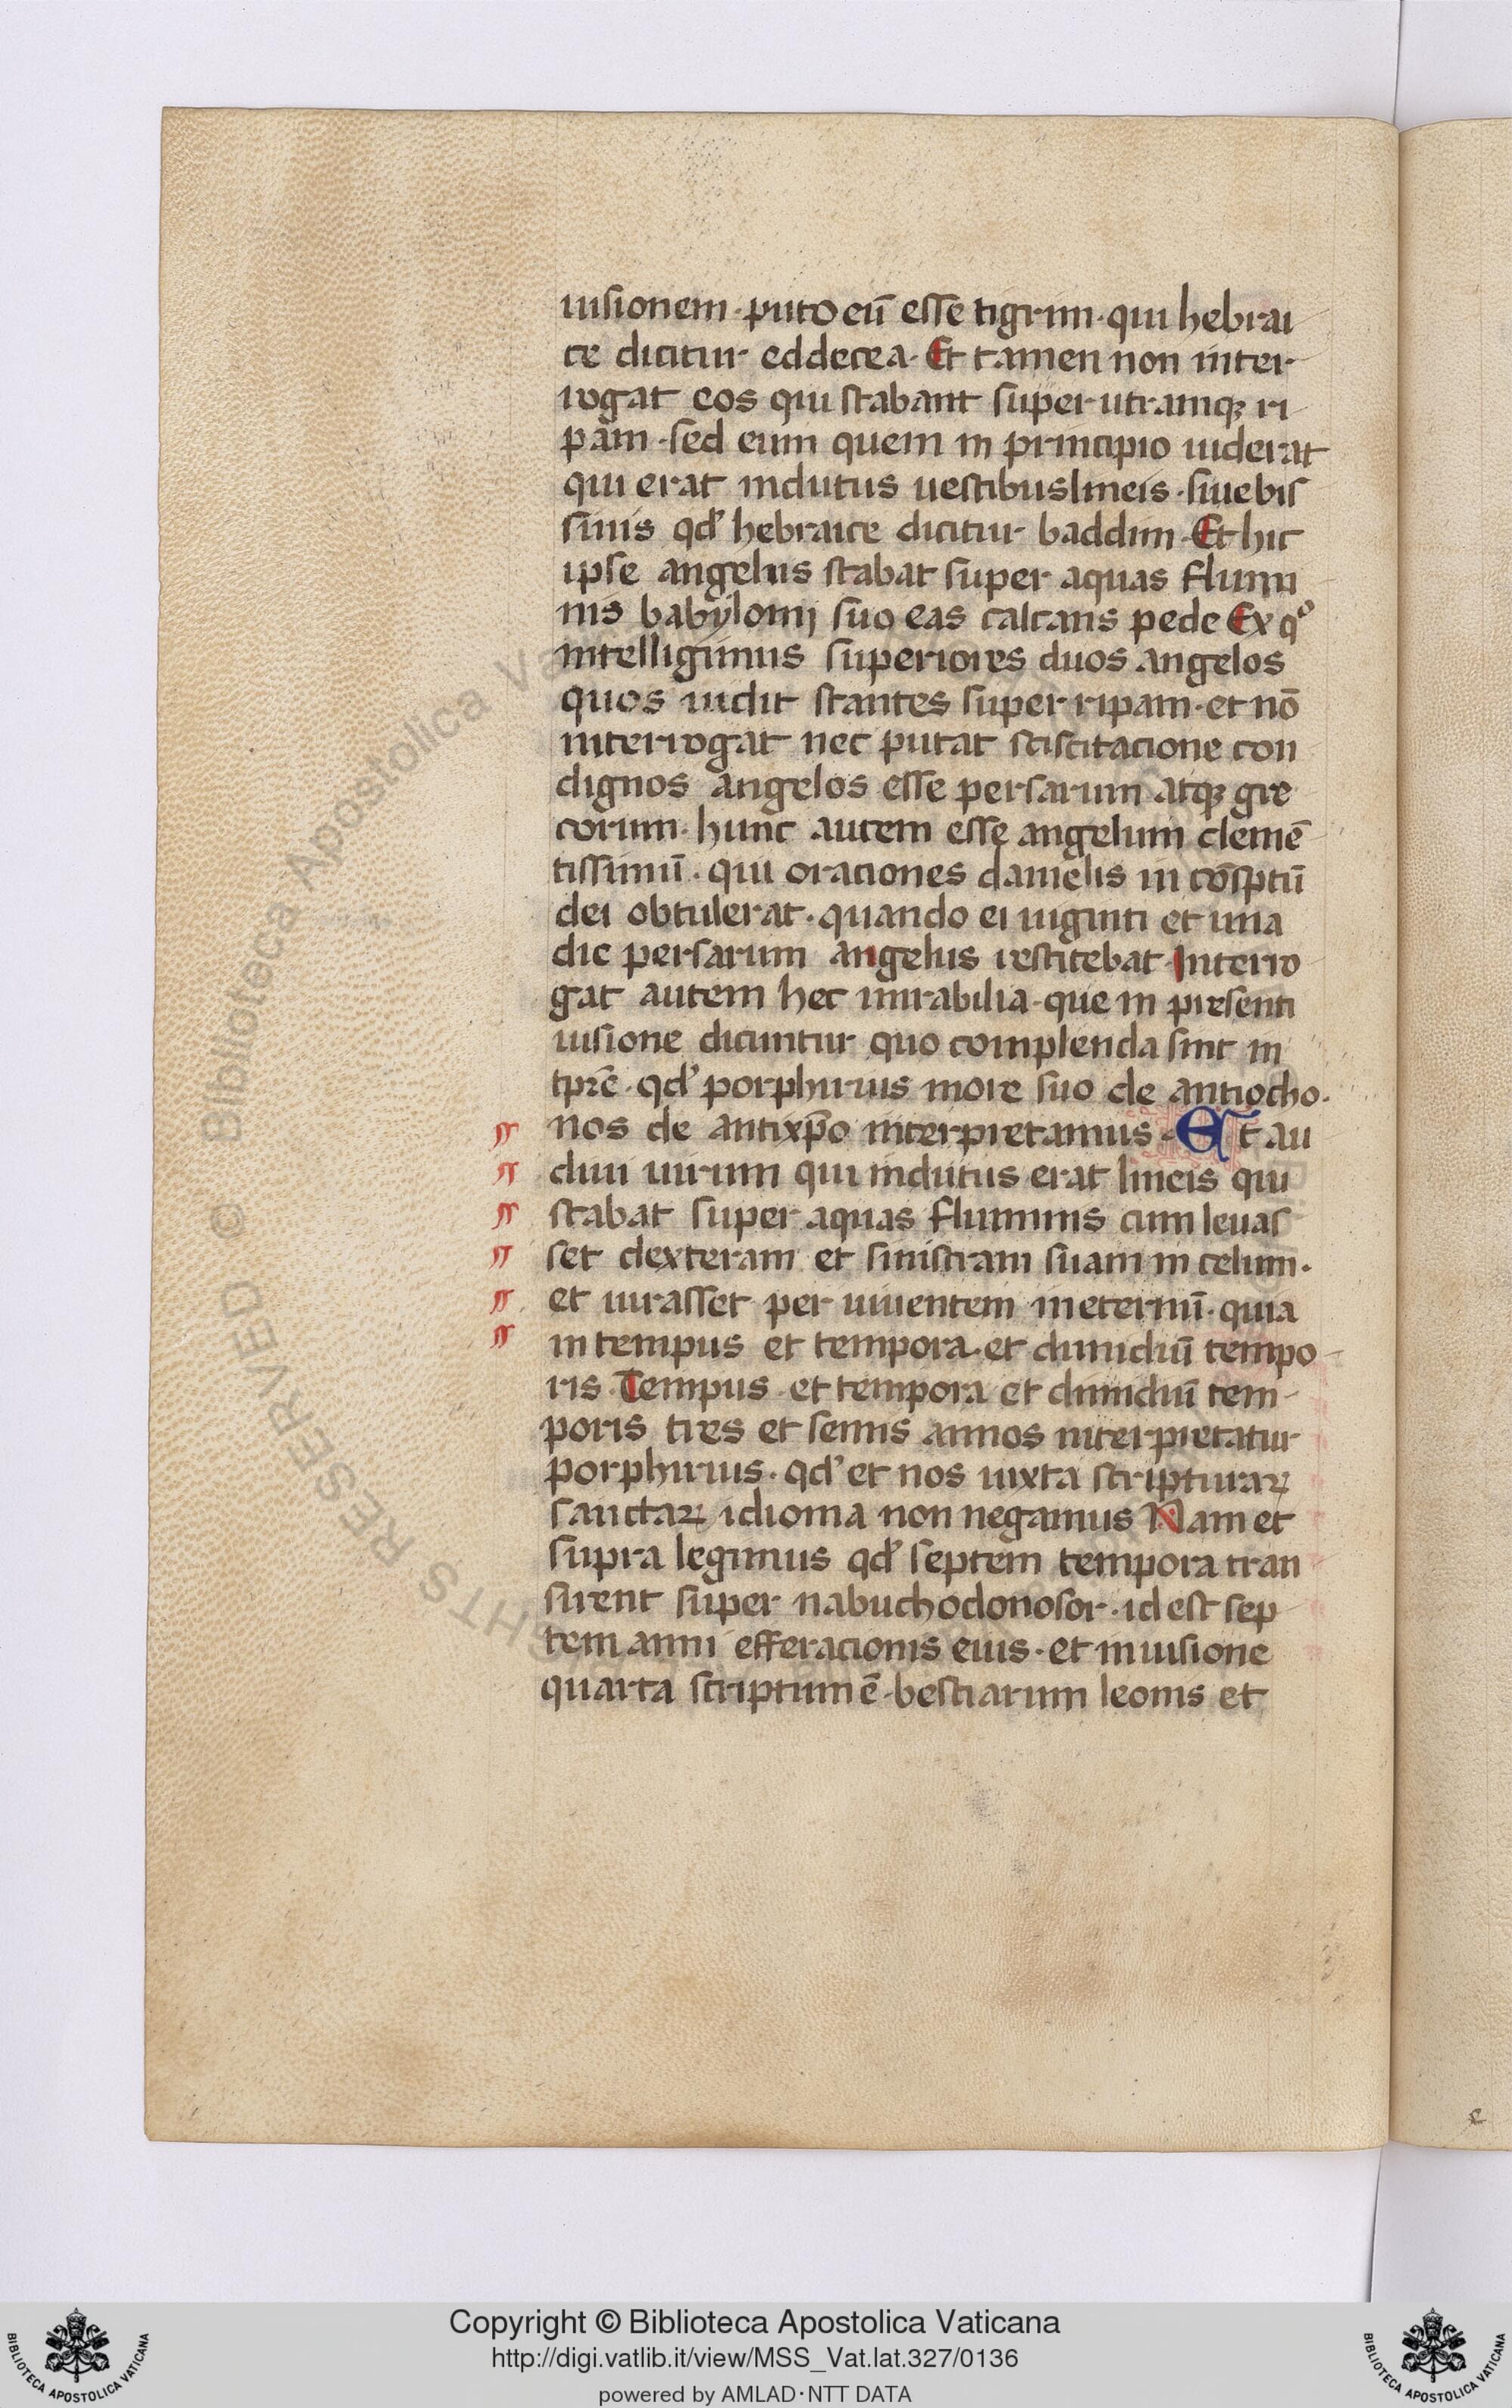 uisionem · puto eū esse tigrim · qui hebrai
ce dicitur eddecea · Et tamen non inter
rogat eos qui stabant super utramqꝫ ri
pam · sed eum quem in principio uiderat
qui erat indutus uestibus lineis · siue bis
sinis qd̛ hebraice dicitur baddim · Et hic
ipse angelus stabat super aquas flumi
nis babylonij suo eas calcans pede Ex qº
intelligimus superiores duos angelos
quos uidit stantes super ripam · et nō
interrogat nec putat sciscitacione con
dignos angelos esse persarum atqꝫ gre
corum · hunc autem esse angelum clemē
tissimū · qui oraciones danielis in cōsptū
dei obtulerat · quando ei uiginti et una
die persarum angelus restitebat · Interro
gat autem hec mirabilia · que in presenti
uisione dicuntur quo complenda sint in
tpr̄e · qd̛ porphirius more suo de antiocho ·
nos de antixp̄o interpretamus · Et au
diui uirum qui indutus erat lineis qui
stabat super aquas fluminis cum leuas
set dexteram et sinistram suam in celum ·
et iurasset per uiuentem in eternū · quia
in tempus et tempora · et dimidiū tempo
ris · Tempus · et tempora et dimidiū tem
poris tres et semis annos interpretatur
porphirius · qd̛ et nos iuxta scripturaꝝ
sanctaꝝ idioma non negamus Nam et
supra legimus qd̛ septem tempora tran
sirent super nabuchodonosor · id est sep
tem anni efferacionis eius · et in uisione
quarta scriptum ē · bestiarum leonis et
Biblioteca Apostolica Va
Copyright © Biblioteca Apostolica Vaticana
http://digi.vatlib.it/view/MSS_Vat.lat.327/0136
powered by AMLAD·NTT DATA
BIBLIOTECA APOSTOLICA VATICANA
BIBLIOTECA APOSTOLICA VATICANA